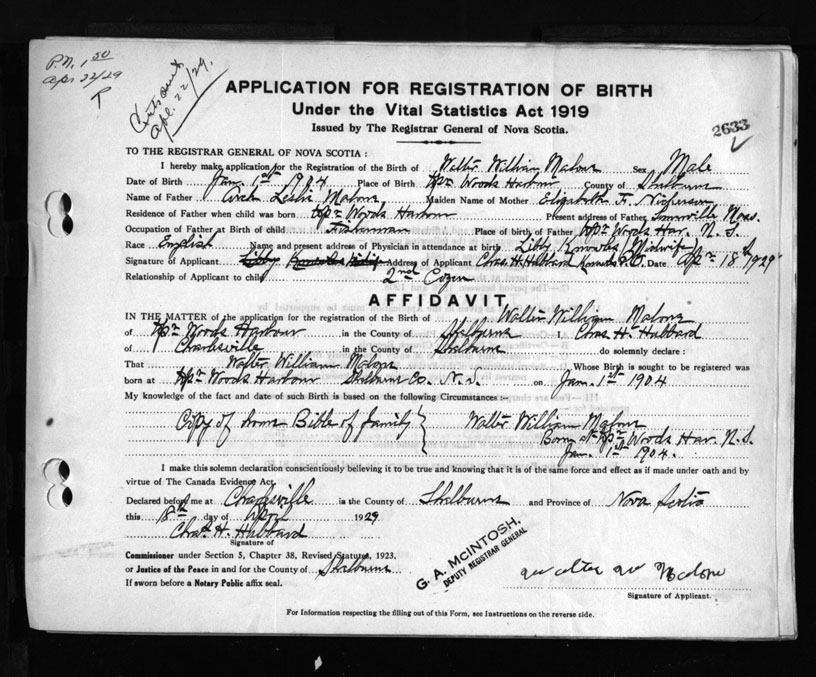 P.N. 1.50
Apr 22/29
Apl. 22/29.
APPLICATION FOR REGISTRATION OF BIRTH
Under the Vital Statistics Act 1919
Issued by The Registrar General of Nova Scotia.
2633
TO THE REGISTRAR GENERAL OF NOVA SCOTIA :
I hereby make application for the Registration of the Birth of Walter William Malone Sex Male
Date of Birth Jan. 1st 1904 Place of Birth Upr Woods Harbour County of Shelburne
Name of Father Leslie Malone Maiden Name of Mother Elizabeth F. Nickerson
Residence of Father when child was born Upr Woods Harbour Present address of Father Somerville Mass.
Occupation of Father at Birth of child Fisherman Place of birth of Father Upr Woods Har. N. S.
Race English Name and present address of Physician in attendance at birth Libby Knowles (Midwife)
Signature of Applicant Libby Address of Applicant Chas. H. Hubbard P.O. Date Apr 18th 1929
Relationship of Applicant to child 2nd Cozen
AFFIDAVIT
IN THE MATTER of the application for the registration of Birth of Walter William Malone
of Upr Woods Harbour in the County of Shelburne I, Chas. H. Hubbard
of Charlesville in the County of Shelburne do solemnly declare :
That Walter William Malone Whose Birth is sought to be registered was
born at Upr Woods Harbour Shelburne Co. N. S. on Jan. 1st 1904
My knowledge of the fact and date of such Birth is based on the following Circumstances :—
Copy of from Bible of family { Walter William Malone
Born at Upr Woods Har. N. S.
Jan. 1st 1904.
I make this solemn declaration conscientiously believing it to be true and knowing that it is of the same force and effect as if made under oath and by
virtue of The Canada Evidence Act.
Declared before me at Charlesville in the County of Shelburne and Province of Nova Scotia
this 18th day of April 1929
Chas. H. Hubbard
Signature of
Commissioner under Section 5, Chapter 38, Revised Statutes, 1923.
or Justice of the Peace in and for the County of Shelburne
If sworn before a Notary Public affix seal.
G. A. McINTOSH,
DEPUTY REGISTRAR GENERAL
Walter W Malone
Signature of Applicant.
For Information respecting the filling out of this Form, see Instructions on the reverse side.